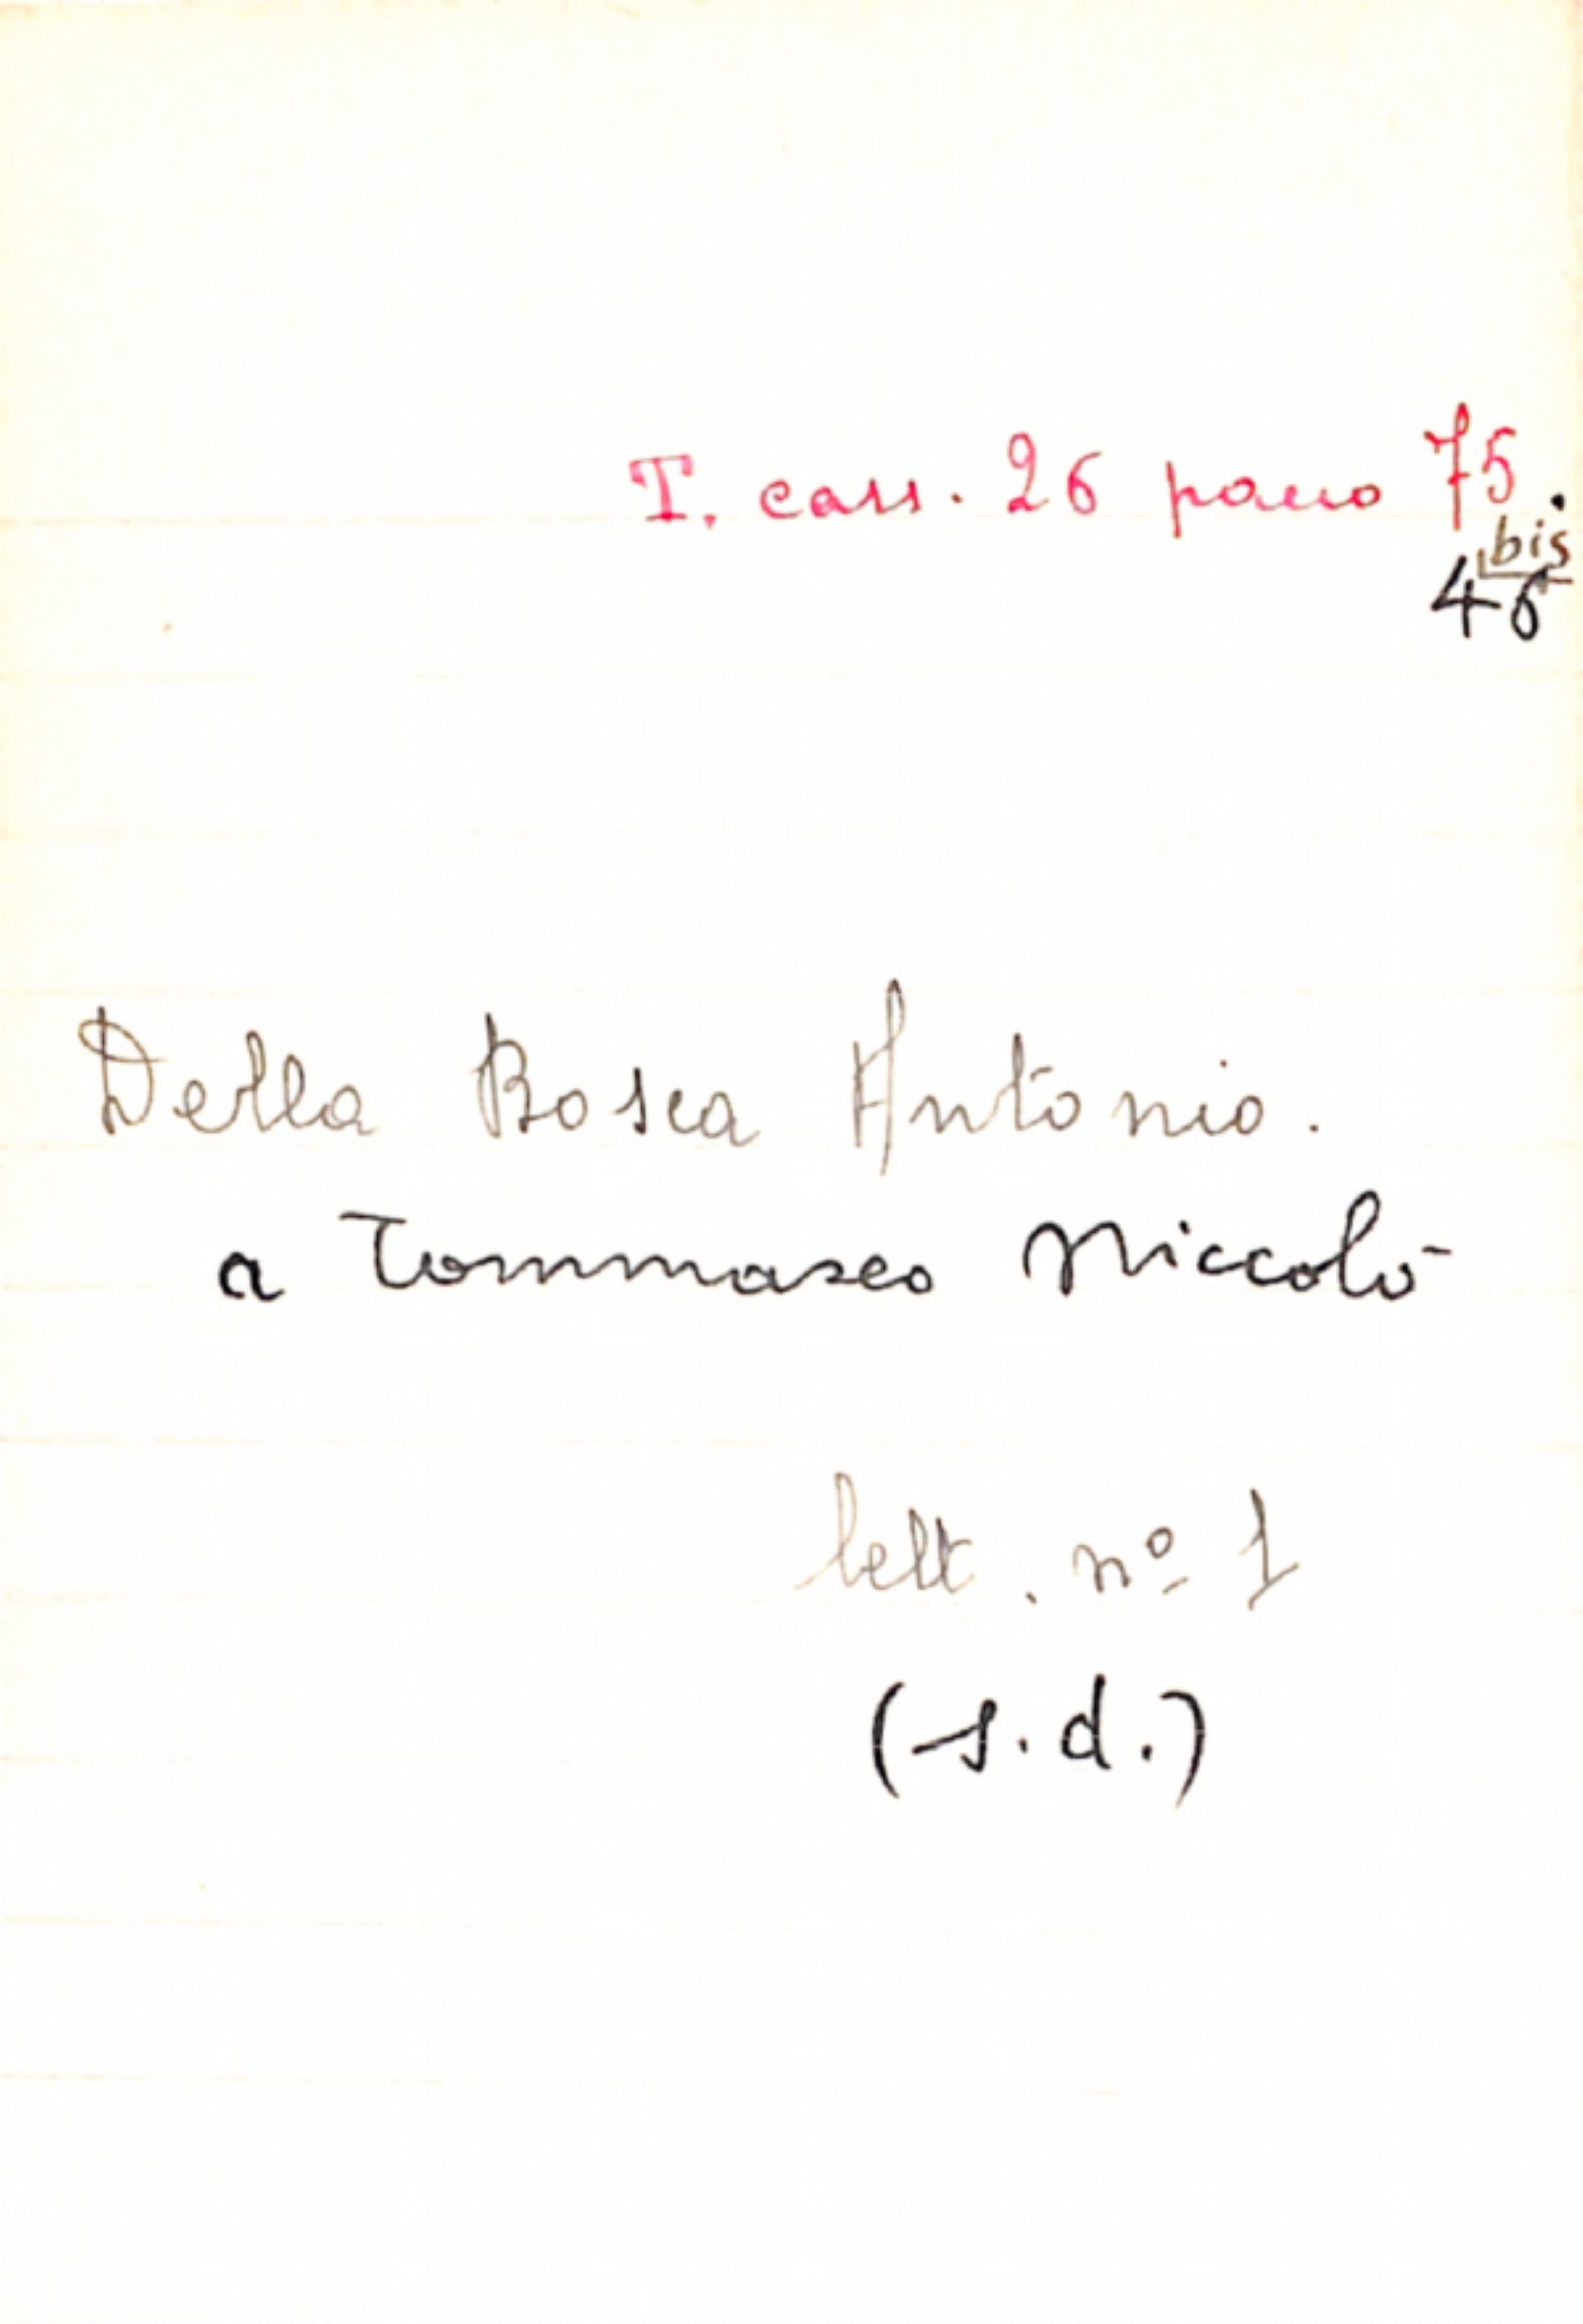 T. cass. 26 pacco 75.
bis
46
Della Bosca Antonio.
a Tommaseo Niccolò
lett. nº 1
(s.d.)